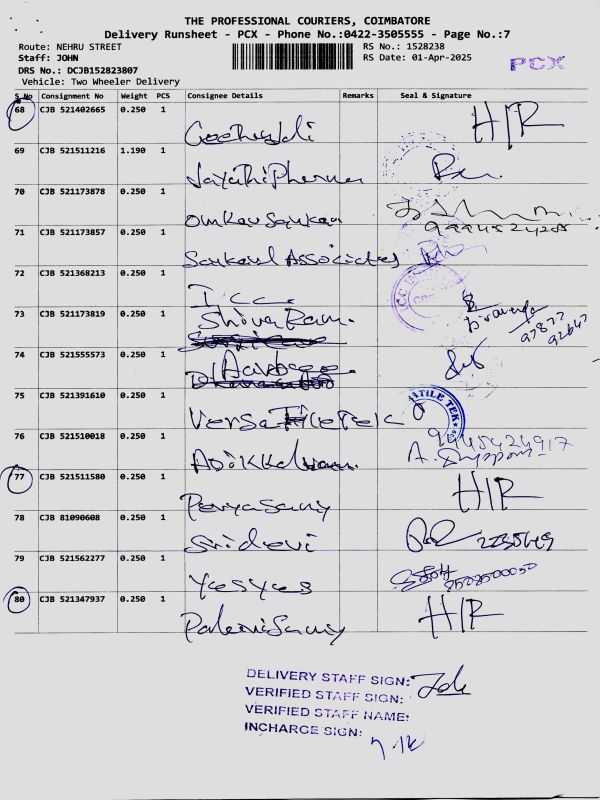 THE PROFESSIONAL COURIERS, COIMBATORE
Delivery Runsheet - PCX - Phone No.:0422-3505555 - Page No.:7
Route: NEHRU STREET
RS No.: 1528238
Staff: JOHN
RS Date: 01-Apr-2025
PCX
DRS No.: DCJB152823807
Vehicle: Two Wheeler Delivery
S.No Consignment No Weight PCS Consignee Details Remarks Seal & Signature
68 CJB 521402665 0.250 1
H/R
69 CJB 521511216 1.190 1
Jayathi Pharma
70 CJB 521173878 0.250 1
Omkar Sankar
71 CJB 521173857 0.250 1
9994524255
Sankarl Associates
72 CJB 521368213 0.250 1
I.C.C.
73 CJB 521173819 0.250 1
Shiva Ram.
74 CJB 521555573 0.250 1
75 CJB 521391610 0.250 1
Versatile Tek
TILE TEK
76 CJB 521510018 0.250 1
9445424917
77 CJB 521511580 0.250 1
H/R
Peryasamy
78 CJB 81090608 0.250 1
Sridevi
2235649
79 CJB 521562277 0.250 1
Yesyes
80 CJB 521347937 0.250 1
H/R
Palanisamy
DELIVERY STAFF SIGN:
VERIFIED STAFF SIGN:
VERIFIED STAFF NAME:
INCHARGE SIGN: